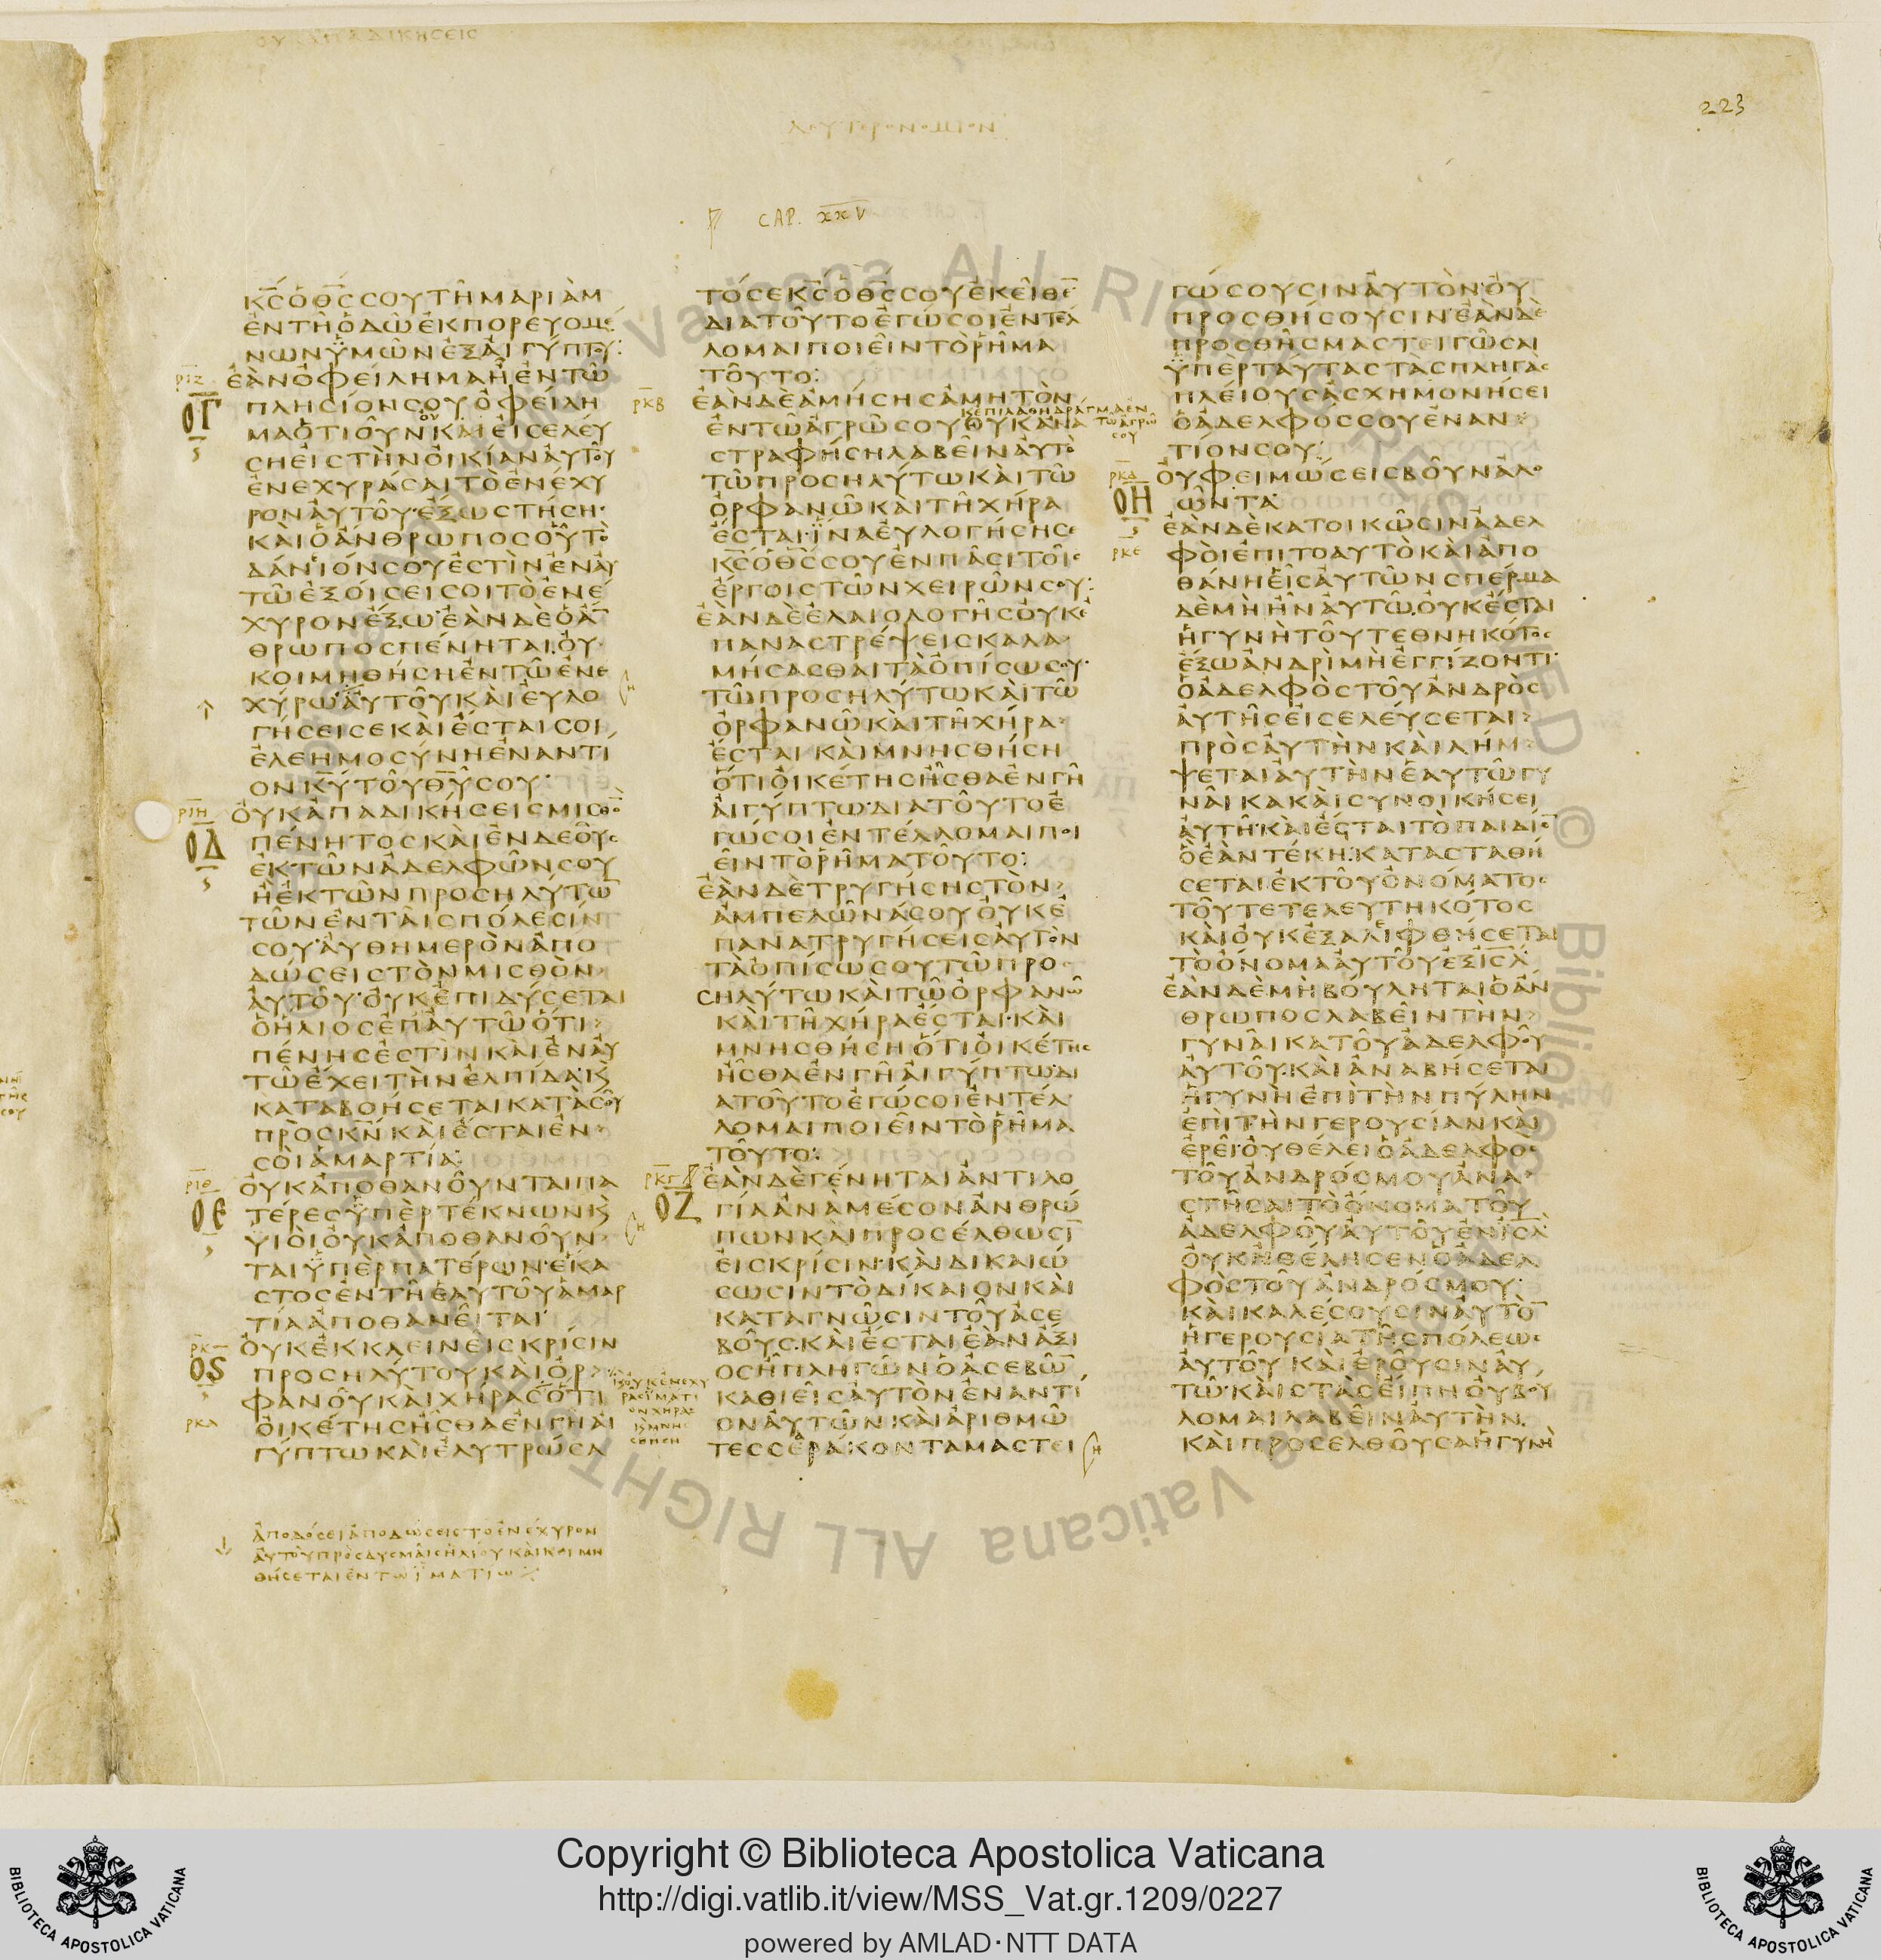 223
CAP. XXV
ΚϹΟΘϹϹΟΥΤΗΜΑΡΙΑΜ
ΕΝΤΗΟΔΩΕΚΠΟΡΕΥΟΜΕ
ΝΩΝΥΜΩΝΕΞΑΙΓΥΠΤΟΥ:
ΡΙΖ
ΕΑΝΟΦΕΙΛΗΜΑΗΕΝΤΩ
ΟΓ
ΠΛΗϹΙΟΝϹΟΥΟΦΕΙΛΗ
ϹΗΕΙϹΤΗΝΟΙΚΙΑΝΑΥΤΟΥ
ΕΝΕΧΥΡΑϹΑΙΤΟΕΝΕΧΥ
ΡΟΝΑΥΤΟΥ·ΕΞΩϹΤΗϹΗ·
ΚΑΙΟΑΝΘΡΩΠΟϹΟΥΤΟ
ΔΑΝΙΟΝϹΟΥΕϹΤΙΝΕΝΑΥ
ΤΩΕΞΟΙϹΕΙϹΟΙΤΟΕΝΕ
ΧΥΡΟΝΕΞΩ·ΕΑΝΔΕΟΑΝ
ΘΡΩΠΟϹΠΕΝΗΤΑΙ·ΟΥ
ΚΟΙΜΗΘΗϹΗΕΝΤΩΕΝΕ
ΧΥΡΩΑΥΤΟΥΚΑΙΕΥΛΟ
ΓΗϹΕΙϹΕΚΑΙΕϹΤΑΙϹΟΙ
ΕΛΕΗΜΟϹΥΝΗΕΝΑΝΤΙ
ΟΝΚΥΤΟΥΘΥϹΟΥ:
ΡΙΗ
ΟΥΚΑΠΑΔΙΚΗϹΕΙϹΜΙϹΘΟΝ
ΟΔ
ΠΕΝΗΤΟϹΚΑΙΕΝΔΕΟΥϹ
ΕΚΤΩΝΑΔΕΛΦΩΝϹΟΥ
ΗΕΚΤΩΝΠΡΟϹΗΛΥΤΩΝ
ΤΩΝΕΝΤΑΙϹΠΟΛΕϹΙΝ
ϹΟΥ·ΑΥΘΗΜΕΡΟΝΑΠΟ
ΔΩϹΕΙϹΤΟΝΜΙϹΘΟΝ
ΑΥΤΟΥ·ΟΥΚΕΠΙΔΥϹΕΤΑΙ
ΟΗΛΙΟϹΕΠΑΥΤΩΟΤΙ
ΠΕΝΗϹΕϹΤΙΝΚΑΙΕΝΑΥ
ΤΩΕΧΕΙΤΗΝΕΛΠΙΔΑ·Κ
ΚΑΤΑΒΟΗϹΕΤΑΙΚΑΤΑϹΟΥ
ΠΡΟϹΚΝΚΑΙΕϹΤΑΙΕΝ
ϹΟΙΑΜΑΡΤΙΑ:
ΡΙΘ
ΟΥΚΑΠΟΘΑΝΟΥΝΤΑΙΠΑ
ΟΕ
ΤΕΡΕϹΥΠΕΡΤΕΚΝΩΝΚ
ΥΙΟΙΟΥΚΑΠΟΘΑΝΟΥΝ
ΤΑΙΥΠΕΡΠΑΤΕΡΩΝ·ΕΚΑ
ϹΤΟϹΕΝΤΗΕΑΥΤΟΥΑΜΑΡ
ΤΙΑΑΠΟΘΑΝΕΙΤΑΙ
ΡΚ
ΟΥΚΕΚΚΛΕΙΝΕΙϹΚΡΙϹΙΝ
ΟϚ
ΠΡΟϹΗΛΥΤΟΥΚΑΙΟΡ
ΦΑΝΟΥΚΑΙΧΗΡΑϹΟΤΙ
ΡΚΑ
ΟΙΚΕΤΗϹΗϹΘΑΕΝΓΗΑΙ
ΓΥΠΤΩΚΑΙΕΛΥΤΡΩϹΑ
ΑΠΟΔΟϹΕΙΑΠΟΔΩϹΕΙϹΤΟΕΝΕΧΥΡΟΝ
ΑΥΤΟΥΠΡΟϹΔΥϹΜΑΙϹΗΛΙΟΥΚΑΙΚΟΙΜΗ
ΘΗϹΕΤΑΙΕΝΤΩΙΜΑΤΙΩ
ΤΟϹΕΚϹΟΘϹϹΟΥΕΚΕΙΘΕ
ΔΙΑΤΟΥΤΟΕΓΩϹΟΙΕΝΤΕΛ
ΛΟΜΑΙΠΟΙΕΙΝΤΟΡΗΜΑ
ΤΟΥΤΟ:
ΡΚΒ
ΕΑΝΔΕΑΜΗϹΗϹΑΜΗΤΟΝ
ΕΝΤΩΑΓΡΩϹΟΥΟΥΚΑΝΑ
ϹΤΡΑΦΗϹΗΛΑΒΕΙΝΑΥΤΟ
ΤΩΠΡΟϹΗΛΥΤΩΚΑΙΤΩ
ΟΡΦΑΝΩΚΑΙΤΗΧΗΡΑ
ΕϹΤΑΙ·ΙΝΑΕΥΛΟΓΗϹΗϹΕ
ΚϹΟΘϹϹΟΥΕΝΠΑϹΙΤΟΙϹ
ΕΡΓΟΙϹΤΩΝΧΕΙΡΩΝϹΟΥ:
ΕΑΝΔΕΕΛΑΙΟΛΟΓΗϹΟΥΚΕ
ΠΑΝΑϹΤΡΕΨΕΙϹΚΑΛΑ
ΜΗϹΑϹΘΑΙΤΑΟΠΙϹΩϹΟΥ·
ΤΩΠΡΟϹΗΛΥΤΩΚΑΙΤΩ
ΟΡΦΑΝΩΚΑΙΤΗΧΗΡΑ·
ΕϹΤΑΙΚΑΙΜΝΗϹΘΗϹΗ
ΟΤΙΟΙΚΕΤΗϹΗϹΘΑΕΝΓΗ
ΑΙΓΥΠΤΩ·ΔΙΑΤΟΥΤΟΕ
ΓΩϹΟΙΕΝΤΕΛΛΟΜΑΙΠΟΙ
ΕΙΝΤΟΡΗΜΑΤΟΥΤΟ:
ΕΑΝΔΕΤΡΥΓΗϹΗϹΤΟΝ
ΑΜΠΕΛΩΝΑϹΟΥΟΥΚΕ
ΠΑΝΑΤΡΥΓΗϹΕΙϹΑΥΤΟΝ
ΤΑΟΠΙϹΩϹΟΥΤΩΠΡΟ
ϹΗΛΥΤΩΚΑΙΤΩΟΡΦΑΝΩ
ΚΑΙΤΗΧΗΡΑΕϹΤΑΙ·ΚΑΙ
ΜΝΗϹΘΗϹΗΟΤΙΟΙΚΕΤΗϹ
ΗϹΘΑΕΝΓΗΑΙΓΥΠΤΩ·ΔΙ
ΑΤΟΥΤΟΕΓΩϹΟΙΕΝΤΕΛ
ΛΟΜΑΙΠΟΙΕΙΝΤΟΡΗΜΑ
ΤΟΥΤΟ:
ΡΚΓ
ΕΑΝΔΕΓΕΝΗΤΑΙΑΝΤΙΛΟ
ΟΖ
ΓΙΑΑΝΑΜΕϹΟΝΑΝΘΡΩ
ΠΩΝΚΑΙΠΡΟϹΕΛΘΩϹΙ
ΕΙϹΚΡΙϹΙΝ·ΚΑΙΔΙΚΑΙΩ
ϹΩϹΙΝΤΟΔΙΚΑΙΟΝΚΑΙ
ΚΑΤΑΓΝΩϹΙΝΤΟΥΑϹΕ
ΒΟΥϹ·ΚΑΙΕϹΤΑΙΕΑΝΑΞΙ
ΟϹΗΠΛΗΓΩΝΟΑϹΕΒΩ
ΚΑΘΙΕΙϹΑΥΤΟΝΕΝΑΝΤΙ
ΟΝΑΥΤΩΝΚΑΙΑΡΙΘΜΩ
ΤΕϹϹΕΡΑΚΟΝΤΑΜΑϹΤΕΙ
ΓΩϹΟΥϹΙΝΑΥΤΟΝ·ΟΥ
ΠΡΟϹΘΗϹΟΥϹΙΝ·ΕΑΝΔΕ
ΠΡΟϹΘΗϹΜΑϹΤΕΙΓΩϹΑΙ
ΥΠΕΡΤΑΥΤΑϹΤΑϹΠΛΗΓΑϹ
ΠΛΕΙΟΥϹΑϹΧΗΜΟΝΗϹΕΙ
ΟΑΔΕΛΦΟϹϹΟΥΕΝΑΝ
ΤΙΟΝϹΟΥ:
ΡΚΔ
ΟΥΦΕΙΜΩϹΕΙϹΒΟΥΝΑΛΟ
ΟΗ
ΩΝΤΑ·
ΕΑΝΔΕΚΑΤΟΙΚΩϹΙΝΑΔΕΛ
ΡΚΕ
ΦΟΙΕΠΙΤΟΑΥΤΟΚΑΙΑΠΟ
ΘΑΝΗΕΙϹΑΥΤΩΝϹΠΕΡΜΑ
ΔΕΜΗΗΝΑΥΤΩ·ΟΥΚΕϹΤΑΙ
ΗΓΥΝΗΤΟΥΤΕΘΝΗΚΟΤΟϹ
ΕΞΩΑΝΔΡΙΜΗΕΓΓΙΖΟΝΤΙ·
ΟΑΔΕΛΦΟϹΤΟΥΑΝΔΡΟϹ
ΑΥΤΗϹΕΙϹΕΛΕΥϹΕΤΑΙ
ΠΡΟϹΑΥΤΗΝΚΑΙΛΗΜ
ΨΕΤΑΙΑΥΤΗΝΕΑΥΤΩΓΥ
ΝΑΙΚΑΚΑΙϹΥΝΟΙΚΗϹΕΙ
ΑΥΤΗ·ΚΑΙΕϹΤΑΙΤΟΠΑΙΔΙΟ
ΟΕΑΝΤΕΚΗ·ΚΑΤΑϹΤΑΘΗ
ϹΕΤΑΙΕΚΤΟΥΟΝΟΜΑΤΟϹ
ΤΟΥΤΕΤΕΛΕΥΤΗΚΟΤΟϹ
ΚΑΙΟΥΚΕΞΑΛΙΦΘΗϹΕΤΑΙ
ΤΟΟΝΟΜΑΑΥΤΟΥΕΞΙϹΛ
ΕΑΝΔΕΜΗΒΟΥΛΗΤΑΙΟΑΝ
ΘΡΩΠΟϹΛΑΒΕΙΝΤΗΝ
ΓΥΝΑΙΚΑΤΟΥΑΔΕΛΦΟΥ
ΑΥΤΟΥ·ΚΑΙΑΝΑΒΗϹΕΤΑΙ
ΗΓΥΝΗΕΠΙΤΗΝΠΥΛΗΝ
ΕΠΙΤΗΝΓΕΡΟΥϹΙΑΝΚΑΙ
ΕΡΕΙ·ΟΥΘΕΛΕΙΟΑΔΕΛΦΟϹ
ΤΟΥΑΝΔΡΟϹΜΟΥΑΝΑ
ϹΤΗϹΑΙΤΟΟΝΟΜΑΤΟΥ
ΑΔΕΛΦΟΥΑΥΤΟΥΕΝΙϹΛ
ΟΥΚΗΘΕΛΗϹΕΝΟΑΔΕΛ
ΦΟϹΤΟΥΑΝΔΡΟϹΜΟΥ·
ΚΑΙΚΑΛΕϹΟΥϹΙΝΑΥΤΟ
ΗΓΕΡΟΥϹΙΑΤΗϹΠΟΛΕΩϹ
ΑΥΤΟΥΚΑΙΕΡΟΥϹΙΝΑΥ
ΤΩ·ΚΑΙϹΤΑϹΕΙΠΗΟΥΒΟΥ
ΛΟΜΑΙΛΑΒΕΙΝΑΥΤΗΝ.
ΚΑΙΠΡΟϹΕΛΘΟΥϹΑΗΓΥΝΗ
Copyright © Biblioteca Apostolica Vaticana
http://digi.vatlib.it/view/MSS_Vat.gr.1209/0227
powered by AMLAD·NTT DATA
BIBLIOTECA APOSTOLICA VATICANA
BIBLIOTECA APOSTOLICA VATICANA